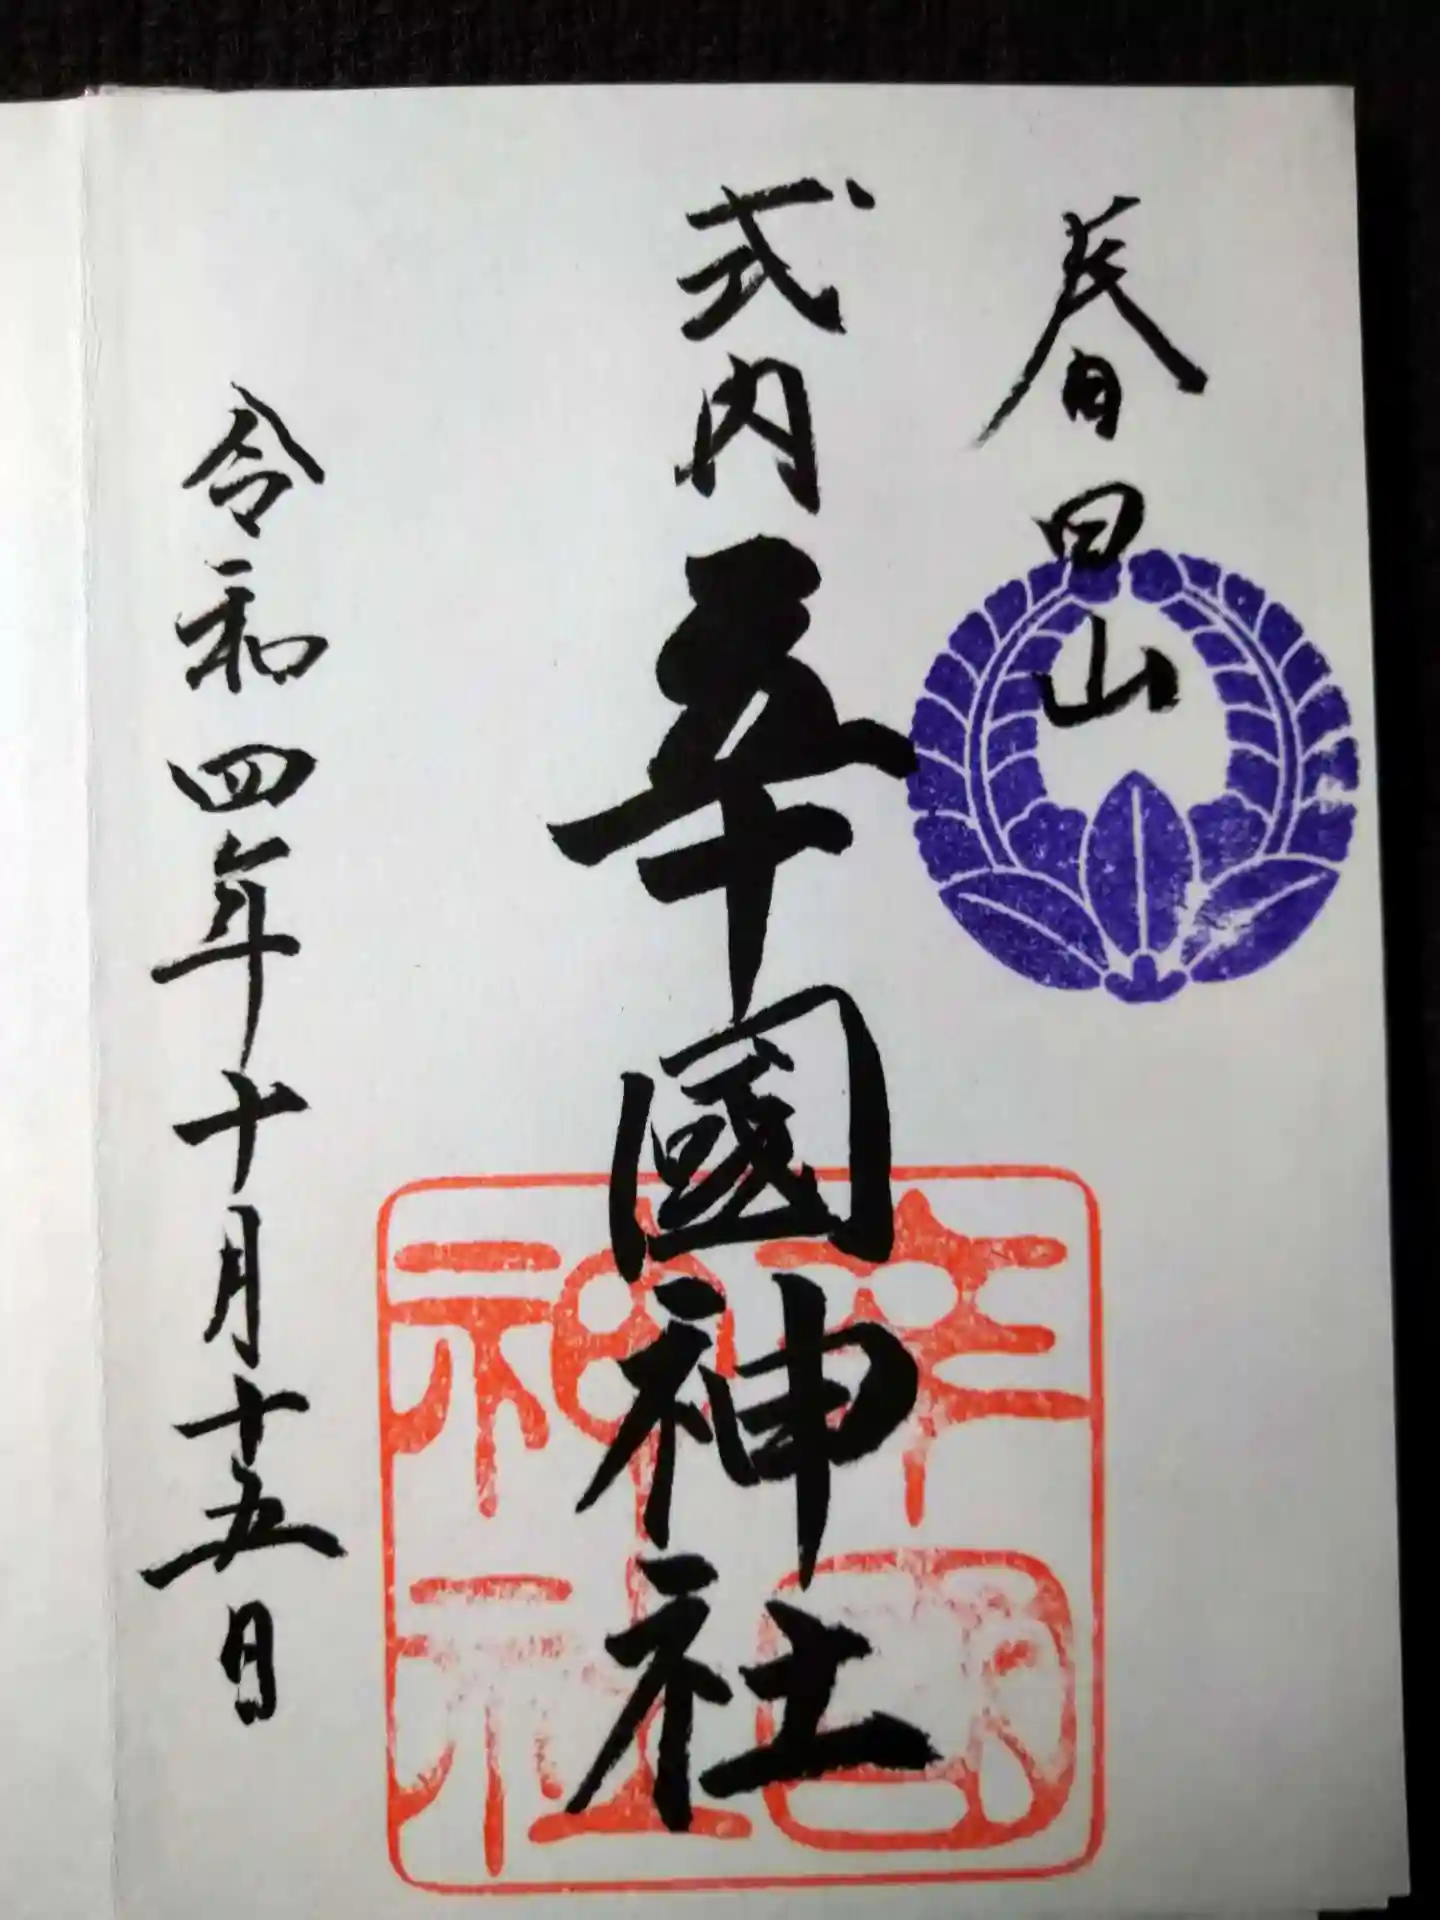 春日山
式内辛國神社
令和四年十月十五日
辛國
神社